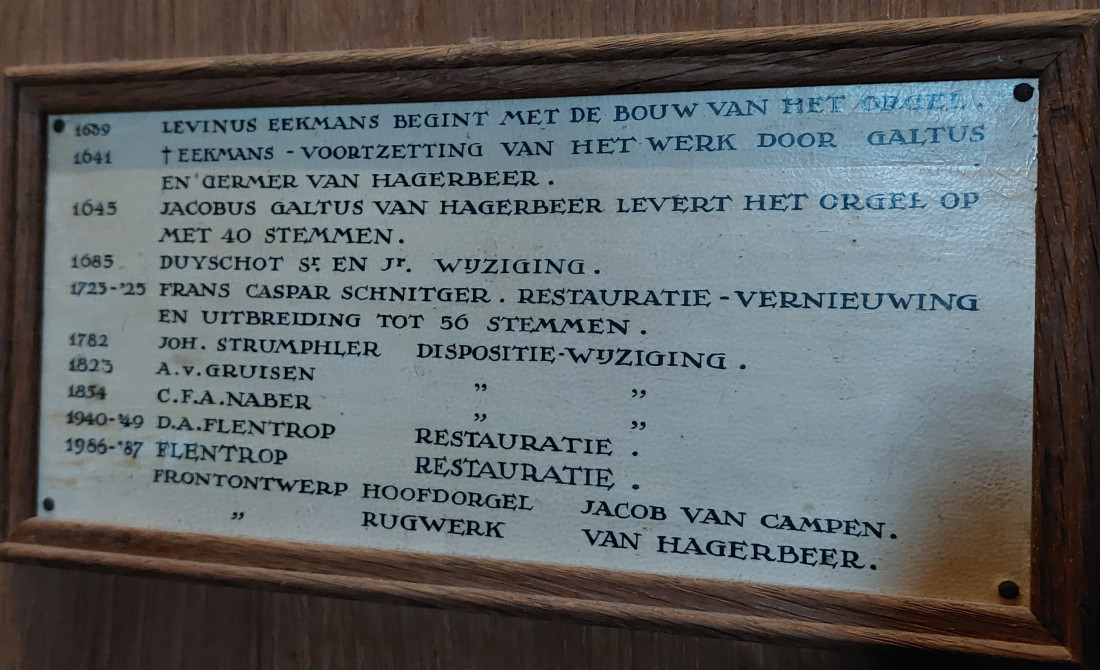 1639 LEVINUS EEKMANS BEGINT MET DE BOUW VAN HET ORGEL.
1641 † EEKMANS - VOORTZETTING VAN HET WERK DOOR GALTUS
EN GERMER VAN HAGERBEER.
1645 JACOBUS GALTUS VAN HAGERBEER LEVERT HET ORGEL OP
MET 40 STEMMEN.
1685 DUYSCHOT Sr. EN Jr. WIJZIGING.
1723-'25 FRANS CASPAR SCHNITGER. RESTAURATIE - VERNIEUWING
EN UITBREIDING TOT 56 STEMMEN.
1782 JOH. STRUMPHLER DISPOSITIE-WIJZIGING.
1823 A.v.GRUISEN " "
1854 C.F.A.NABER " "
1940-'49 D.A.FLENTROP RESTAURATIE.
1986-'87 FLENTROP RESTAURATIE.
FRONTONTWERP HOOFDORGEL JACOB VAN CAMPEN.
" RUGWERK VAN HAGERBEER.